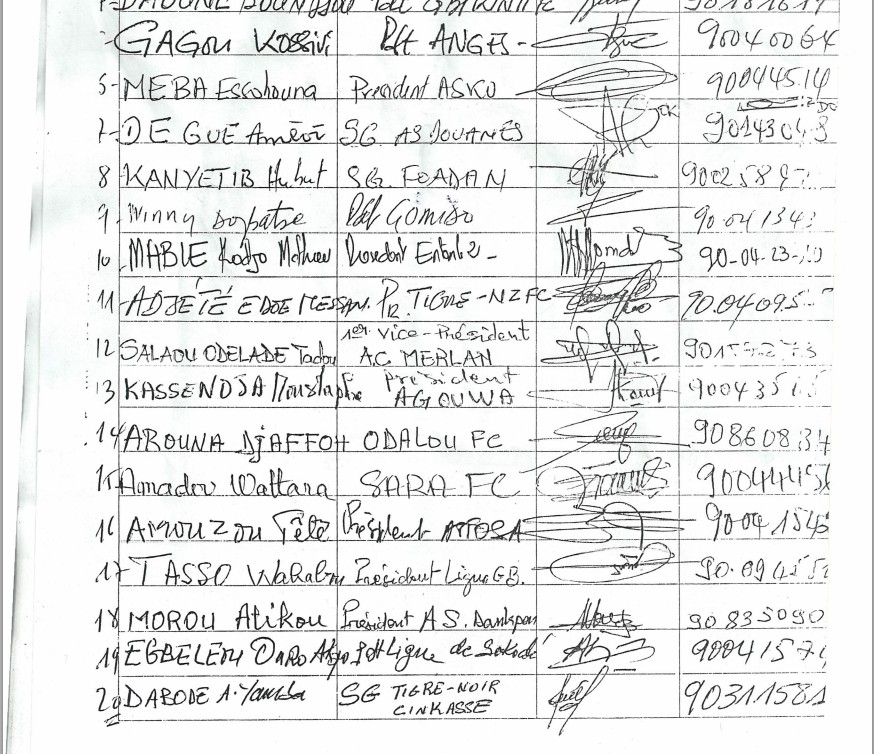 GAGOU Kossivi Pdt ANGES - 90040064
6- MEBA Essohouna President ASKO 90044514
7- DEGUE Amévi SG AS DOUANES
8 KANYETIB Hubert SG. FOADAN 9002589
9- Winny Dogbatse Pdt Gomido 90 04 1343
10 MABLE Kodjo Mathieu President Entente 2 - 90-04-23-
11- ADJETE EDOE MESSAN. Pr. TIGRE-NZFC 90.04095
12 SALAOU ODELADE Tadou 1er Vice-Président
A.C. MERLAN
13 KASSENDJA Moustapha président
AGOUWA 90043515
14 AROUNA DjAFFOH ODALOU FC 90860834
15 Amadou Wattara SARA FC 9004445
16 AMOUZOU Tété Président 9004154
17- TASSO Wakabou Président Ligue GB. 90.0945
18 MOROU Atikou Président AS. Dankpen 90835090
19 EGBELEOU OURO Pdt Ligue de Sokodé 9004157
20 DABODE A. Yamba SG TIGRE-NOIR 90311581
CINKASSE